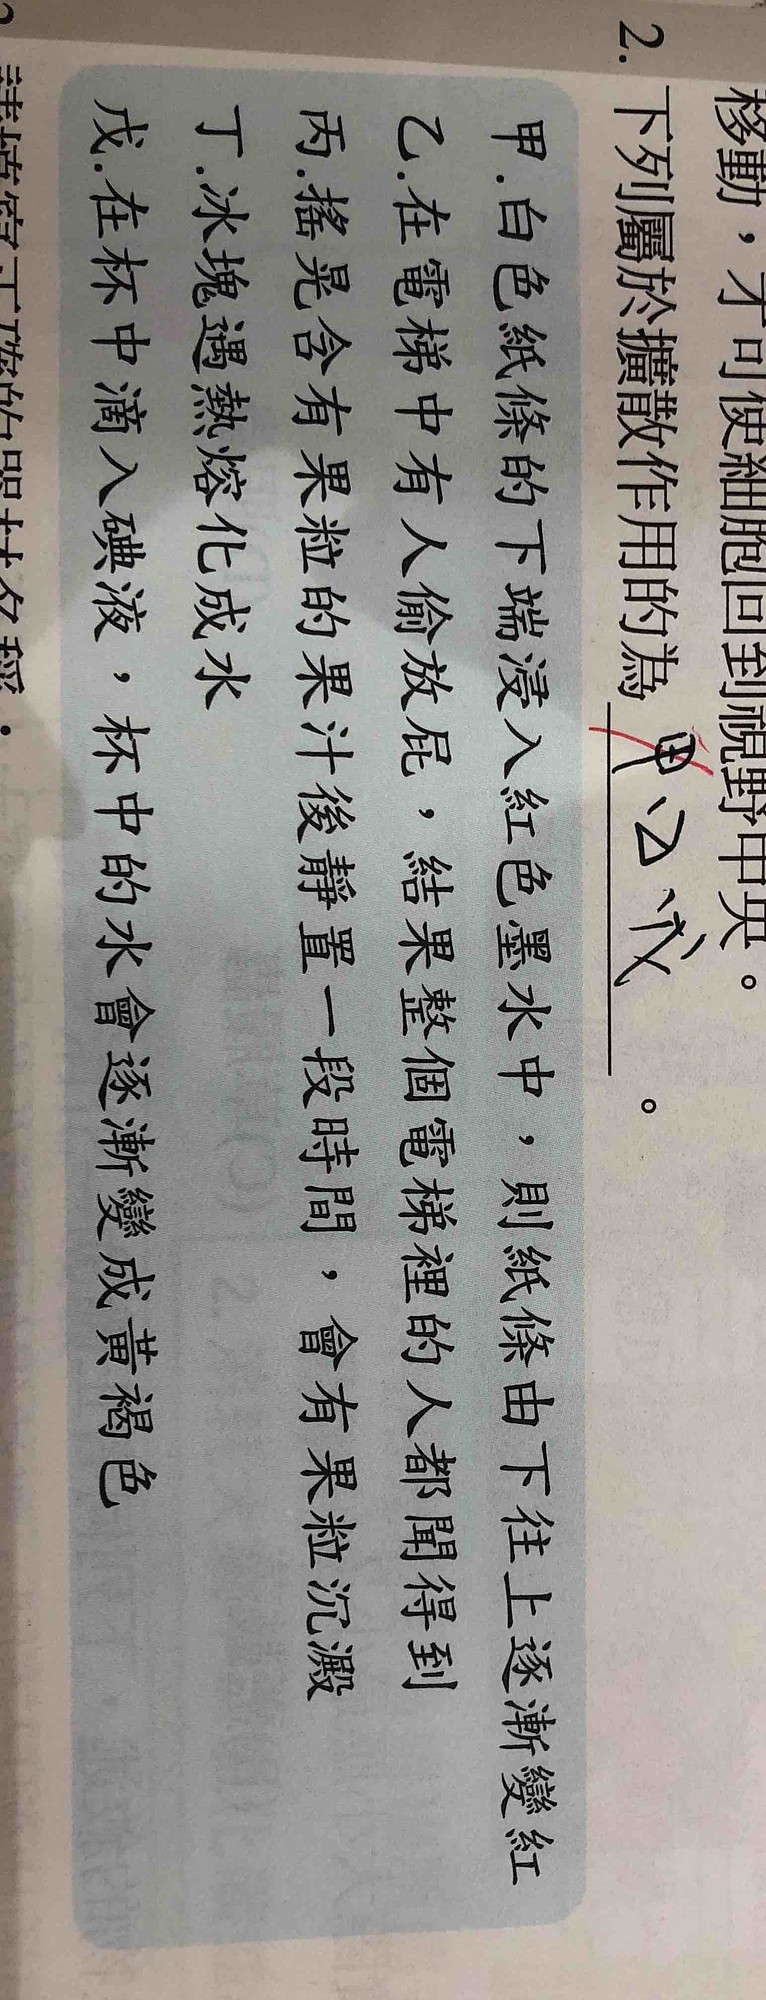 移動，才可使細胞回到視野中央。
2. 下列屬於擴散作用的為 甲、乙、戊 。
甲.白色紙條的下端浸入紅色墨水中，則紙條由下往上逐漸變紅
乙.在電梯中有人偷放屁，結果整個電梯裡的人都聞得到
丙.搖晃含有果粒的果汁後靜置一段時間，會有果粒沉澱
丁.冰塊遇熱熔化成水
戊.在杯中滴入碘液，杯中的水會逐漸變成黃褐色